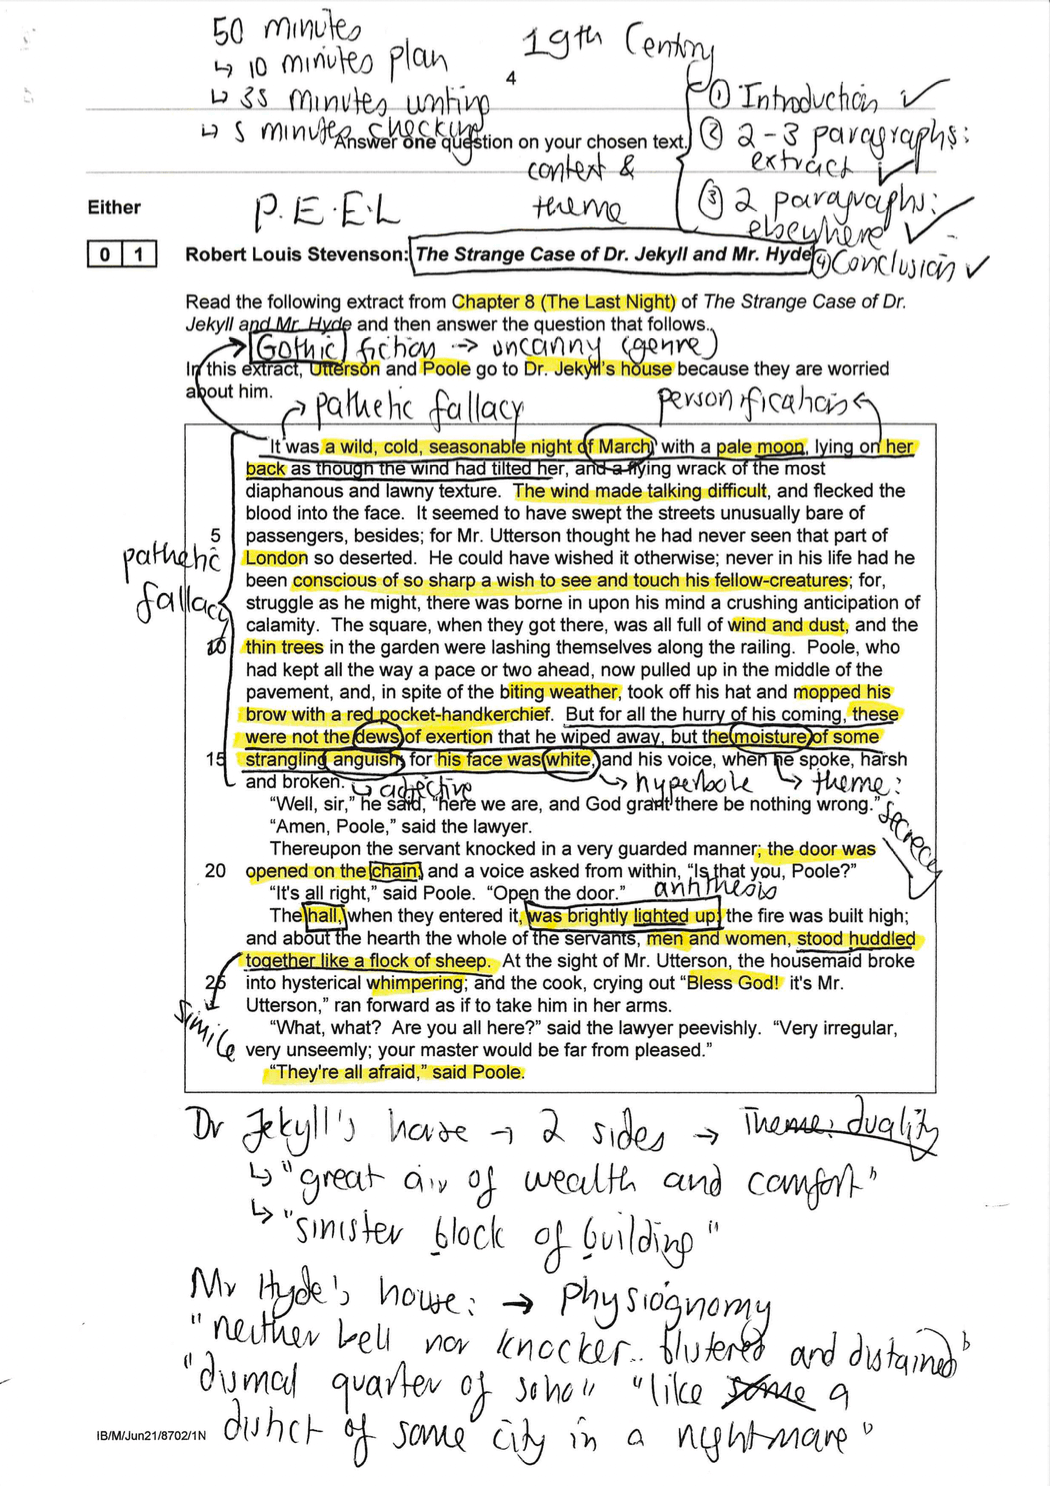 50 minutes
↳ 10 minutes plan
↳ 35 minutes writing
↳ 5 minutes checking
19th Century
4
① Introduction ✓
② 2-3 paragraphs:
extract ✓
③ 2 paragraphs:
elsewhere ✓
④ Conclusion ✓
Answer one question on your chosen text.
context &
theme
Either
P.E.E.L
0 1
Robert Louis Stevenson: The Strange Case of Dr. Jekyll and Mr. Hyde
Read the following extract from Chapter 8 (The Last Night) of The Strange Case of Dr.
Jekyll and Mr. Hyde and then answer the question that follows.
Gothic fiction → uncanny (genre)
In this extract, Utterson and Poole go to Dr. Jekyll's house because they are worried
about him.
pathetic fallacy
personification
It was a wild, cold, seasonable night of March, with a pale moon, lying on her
back as though the wind had tilted her, and a flying wrack of the most
diaphanous and lawny texture. The wind made talking difficult, and flecked the
blood into the face. It seemed to have swept the streets unusually bare of
5 passengers, besides; for Mr. Utterson thought he had never seen that part of
London so deserted. He could have wished it otherwise; never in his life had he
been conscious of so sharp a wish to see and touch his fellow-creatures; for,
struggle as he might, there was borne in upon his mind a crushing anticipation of
calamity. The square, when they got there, was all full of wind and dust, and the
10 thin trees in the garden were lashing themselves along the railing. Poole, who
had kept all the way a pace or two ahead, now pulled up in the middle of the
pavement, and, in spite of the biting weather, took off his hat and mopped his
brow with a red pocket-handkerchief. But for all the hurry of his coming, these
were not the dews of exertion that he wiped away, but the moisture of some
15 strangling anguish; for his face was white, and his voice, when he spoke, harsh
and broken.
pathetic
fallacy
adjective
hyperbole
theme:
secrecy
“Well, sir,” he said, “here we are, and God grant there be nothing wrong.”
“Amen, Poole,” said the lawyer.
Thereupon the servant knocked in a very guarded manner; the door was
20 opened on the chain; and a voice asked from within, “Is that you, Poole?”
“It's all right,” said Poole. “Open the door.”
antithesis
The hall, when they entered it, was brightly lighted up; the fire was built high;
and about the hearth the whole of the servants, men and women, stood huddled
together like a flock of sheep. At the sight of Mr. Utterson, the housemaid broke
25 into hysterical whimpering; and the cook, crying out “Bless God! it's Mr.
Utterson,” ran forward as if to take him in her arms.
simile
“What, what? Are you all here?” said the lawyer peevishly. “Very irregular,
very unseemly; your master would be far from pleased.”
“They're all afraid,” said Poole.
Dr Jekyll's house → 2 sides → Theme: duality
↳ "great air of wealth and comfort"
↳ "sinister block of building"
Mr Hyde's house: → physiognomy
"neither bell nor knocker.. blistered and distained"
"dismal quarter of soho" "like some a
district of some city in a nightmare"
IB/M/Jun21/8702/1N